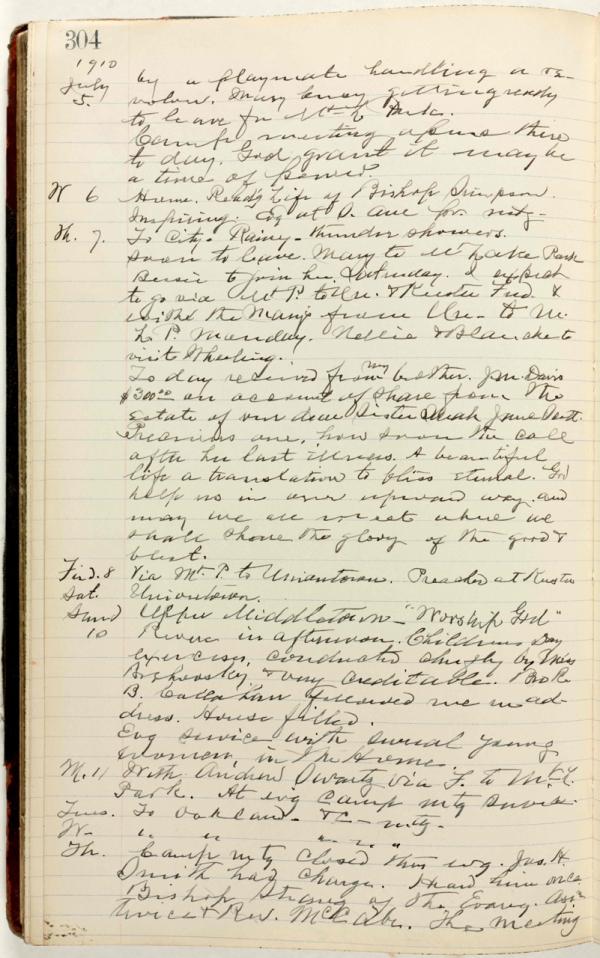 304
1910
July by a playmate handling a re-
5. volver. Mary busy getting ready
to leave for Mt L Park.
Camp meeting opens there
to day. God grant it may be
a time of power.
W 6 Home. Read'g Life of Bishop Simpson.
Inspiring. Eg at O. ave for mtg-
Th. 7. To City. Rainy - thunder showers.
Soon to leave. Mary to Mt Lake Park
Bessie to join her Saturday. I expect
to go via Mt P. to Un. & Fred &
with the from Un- to M.
L P. Monday. Nellie & Blanche to
visit Wheeling.
To day received from my brother. J.M. Davis
$300.00 on account of share from the
Estate of our dear Sister Jane
Precious one, how soon the call
after her last illness. A beautiful
life a translation to bliss eternal. God
help us in our upward way. and
may we all meet where we
shall share the glory of the good &
blest.
Frid. 8 Via Mt. P. to Uniontown. Preached at
Sat. Uniontown.
Sund Upper Middletown - "Worship God"
10 in afternoon. Childrens Day
exercises, conducted chiefly by Miss
& very creditable. Bro R.
B. Callahan followed me in ad-
dress. House filled.
Evg service with several young
women, in the Home.
M. 11 With Andrew Swartz via F. to Mt. L.
Park. At evg Camp mtg service.
Tues. To Oakland - mtg.
W- " " " "
Th. Camp mtg closed this evg. Jos. H.
Smith had charge. Heard him once
Bishop of the Evang. Ass'
twice & Rev. McCabe. The meeting